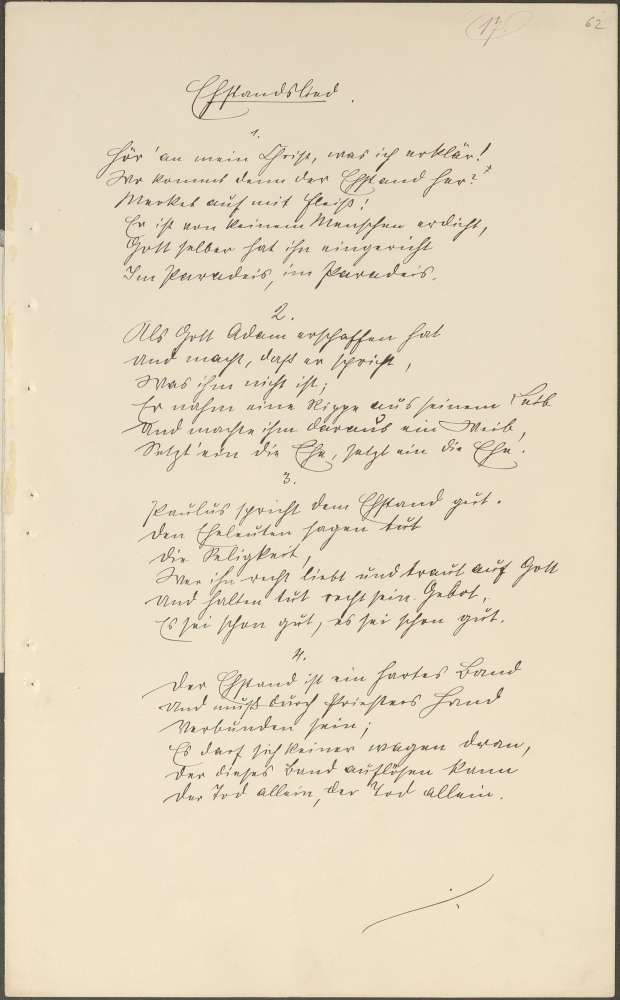 17.
62
Ehstandslied.
1.
Hör' an mein Christ, was ich erklär!
Wo kommt denn der Ehstand her?
Merket auf mit Fleiß!
Er ist von keinem Menschen erdicht,
Gott selber hat ihn eingericht
Im Paradeis, im Paradeis.
2.
Als Gott Adam erschaffen hat
Und macht, daß er spricht,
Was ihm nicht ist;
Er nahm eine Rippe aus seinem Leib
Und machte ihm daraus ein Weib,
Setzt' ein die Ehe, setzt ein die Ehe.
3.
Paulus spricht dem Ehstand gut.
Den Eheleuten sagen tut
Die Seligkeit,
Wer ihn recht liebt und traut auf Gott
Und halten tut recht sein Gebot,
Es sei schon gut, es sei schon gut.
4.
Der Ehstand ist ein hartes Band
Und muß durch Priesters Hand
Verbunden sein;
Es darf sich keiner wagen dran,
Der dieses Band auflösen kann
Der Tod allein, der Tod allein.